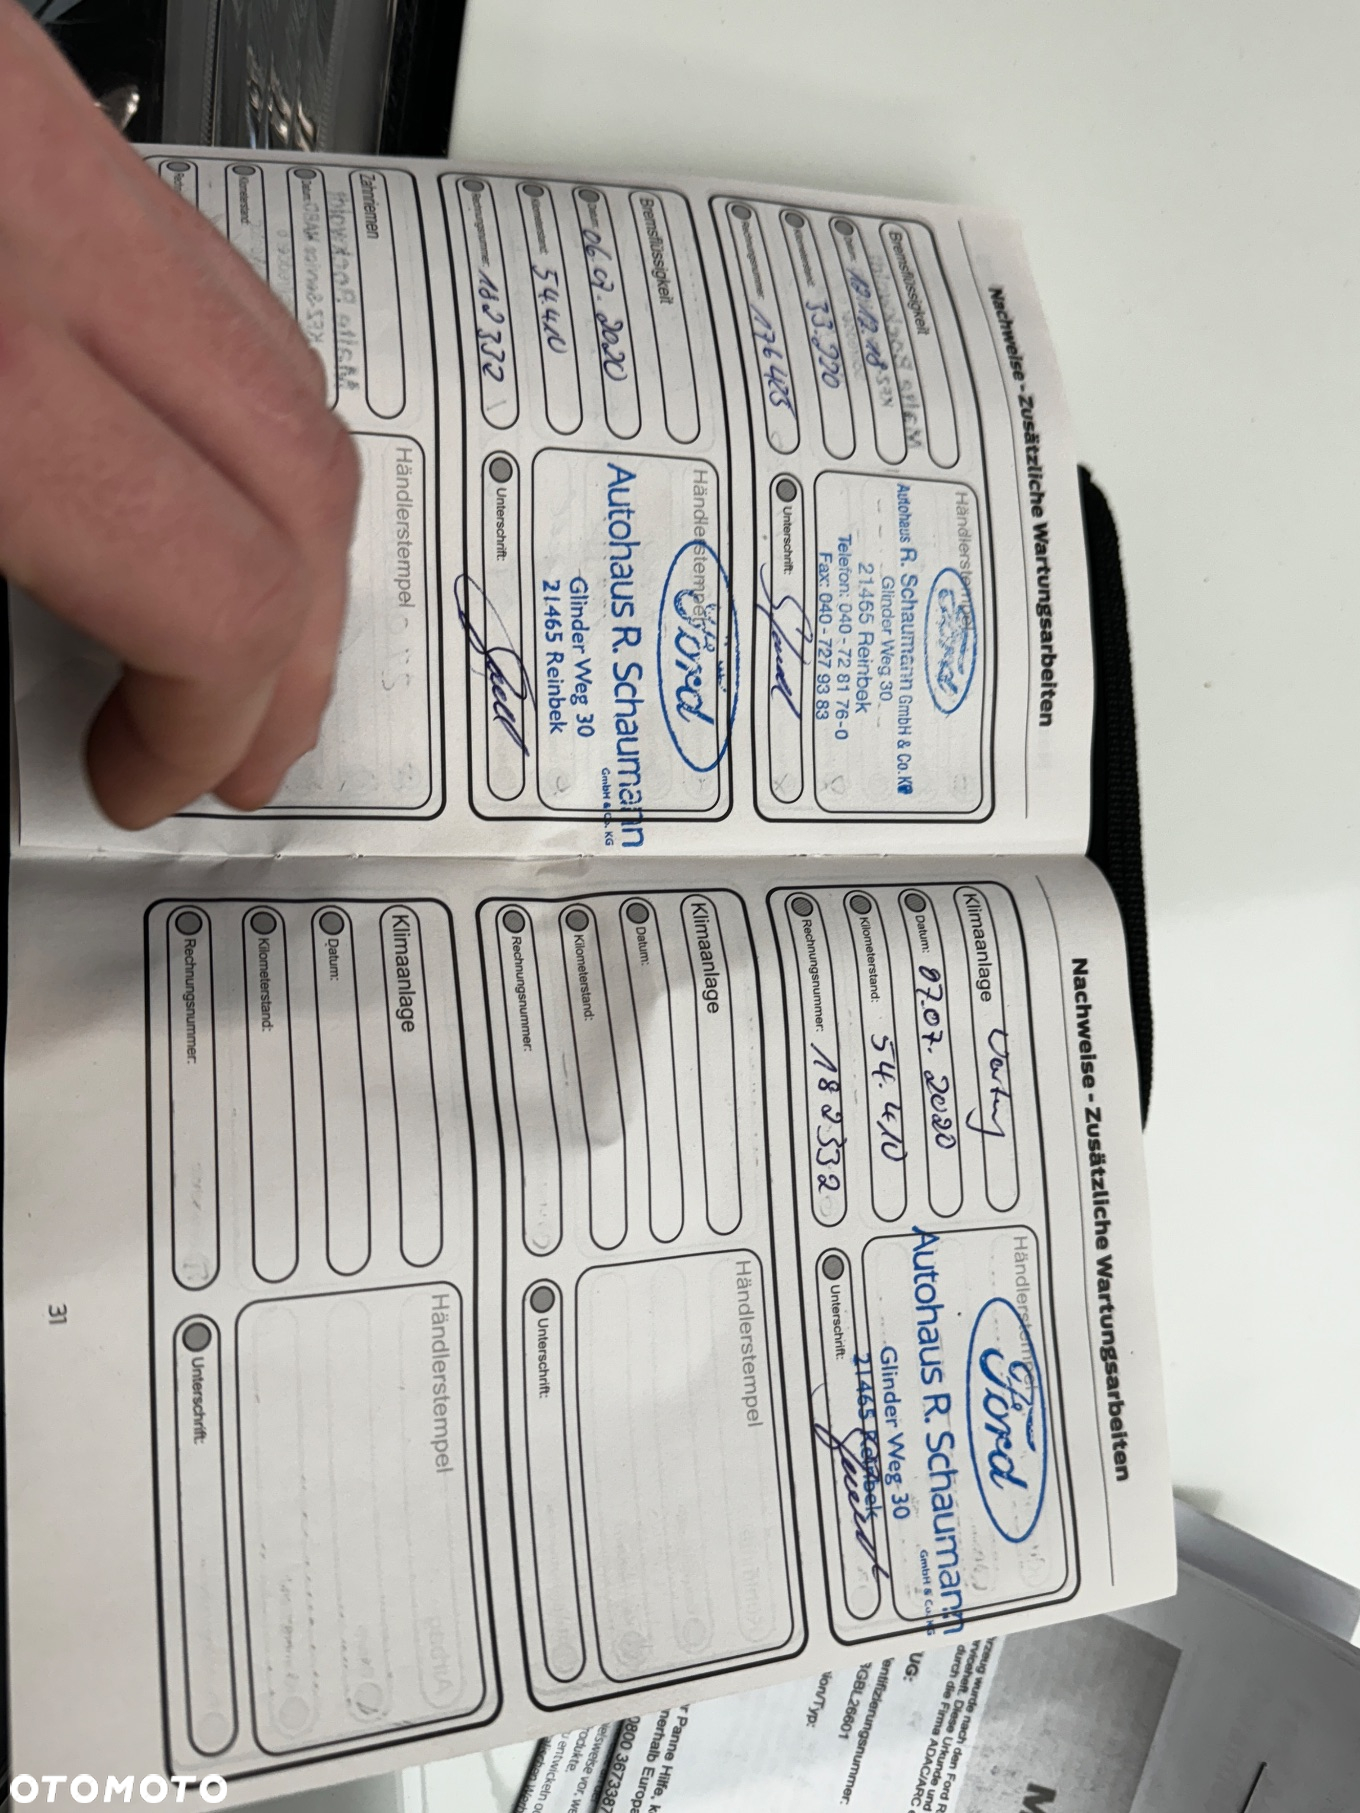 Nachweise - Zusätzliche Wartungsarbeiten
Bremsflüssigkeit
Datum: 12.12.18
Kilometerstand: 33.220
Rechnungsnummer: 176425
Händlerstempel
Ford
Autohaus R. Schaumann GmbH & Co. KG
Glinder Weg 30
21465 Reinbek
Telefon: 040 - 72 81 76-0
Fax: 040 - 727 93 83
Unterschrift:
Bremsflüssigkeit
Datum: 06.07.2020
Kilometerstand: 54.410
Rechnungsnummer: 182332
Händlerstempel
Ford
Autohaus R. Schaumann
GmbH & Co. KG
Glinder Weg 30
21465 Reinbek
Unterschrift:
Zahnriemen
Datum:
Kilometerstand:
Händlerstempel
Nachweise - Zusätzliche Wartungsarbeiten
Klimaanlage Wartung
Datum: 07.07.2020
Kilometerstand: 54.410
Rechnungsnummer: 182332
Händlerstempel
Ford
Autohaus R. Schaumann
GmbH & Co. KG
Glinder Weg 30
21465 Reinbek
Unterschrift:
Klimaanlage
Datum:
Kilometerstand:
Rechnungsnummer:
Händlerstempel
Unterschrift:
Klimaanlage
Datum:
Kilometerstand:
Rechnungsnummer:
Händlerstempel
Unterschrift:
31
wurde nach den Ford R
durch die Firma ADAC/ARC
UG:
entifizierungsnummer:
GBL26601
ion/Typ:
r Panne Hilfe, k
nerhalb Europa
0800 3673387
OTOMOTO